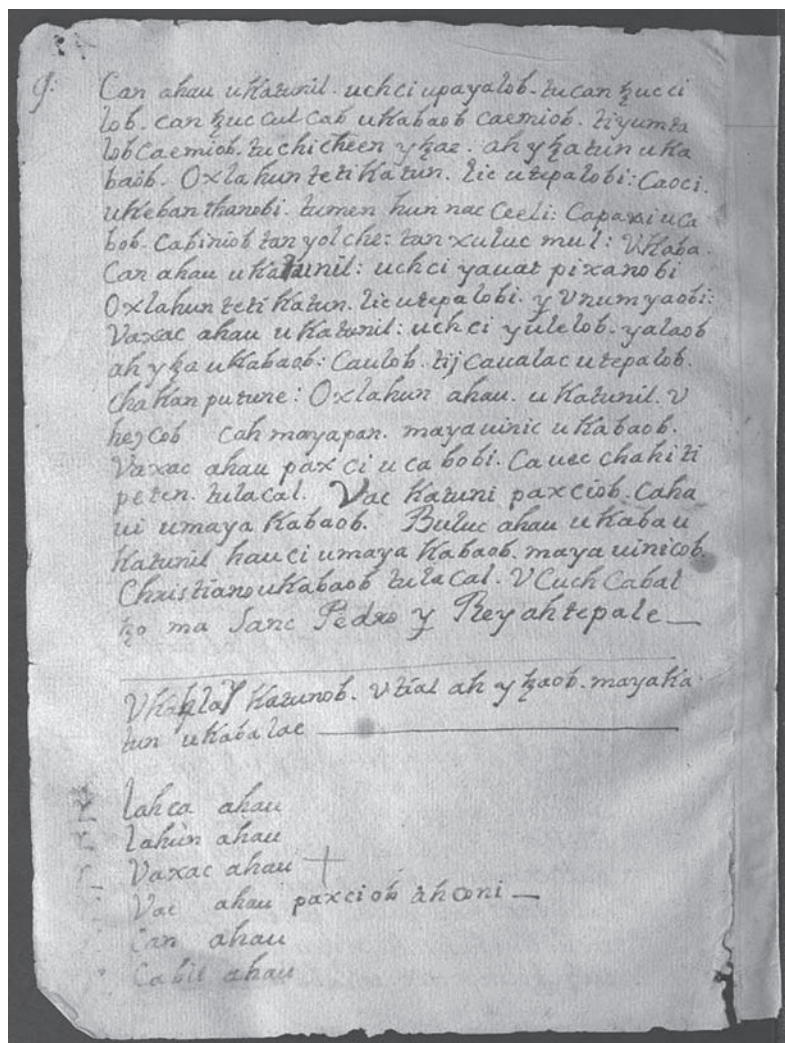 Can ahau u Katunil. uchci upayalob. tu can ꜩucci
lob. can ꜩuc cul cab u Kabaob caemiob. tiyumta
lob Caemiob. tu chicheen y ꜩae. ah y ꜩa tun u Ka
baob. Oxlahun teti Katun. lic u tepalobi: Caoci.
u Keban thanobi. tumen hun nac Ceeli: Capaxi u ca
bob. Cabiniob tan yol che: tan xuluc mul: V Kaba.
Can ahau u Katunil: uchci yauat pixanobi
Oxlahun teti Katun. lic u tepalobi. y Vnumyaobi:
Vaxac ahau u Katunil: uchci yulelob. yalaob
ah y ꜩa u Kabaob: Caulob. tij caualac u tepalob.
chaKan putune: Oxlahun ahau. u Katunil. V
heꜩcob cah mayapan. maya uinic u Kabaob.
Vaxac ahau pax ci u ca bobi. Ca uec chahi ti
peten. tulacal. Vac Katuni paxciob. Caha
ui u maya Kabaob. Buluc ahau u Kaba u
Katunil hauci u maya Kabaob. maya uinicob.
Christiano u Kabaob tulacal. V Cuch Cabal
ꜩo ma Sanc Pedro y Rey ahtepale
V Kahlay Katunob. V tial ah y ꜩaob. maya Ka
tun u Kaba lae
lahca ahau
lahun ahau
Vaxac ahau
Vac ahau paxciob
Can ahau
Cabil ahau